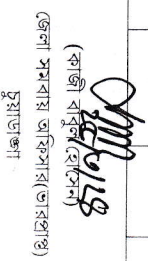 (কাজী বাবুল হোসেন)
জেলা সমবায় অফিসার(ভারপ্রাপ্ত)
চুয়াডাঙ্গা